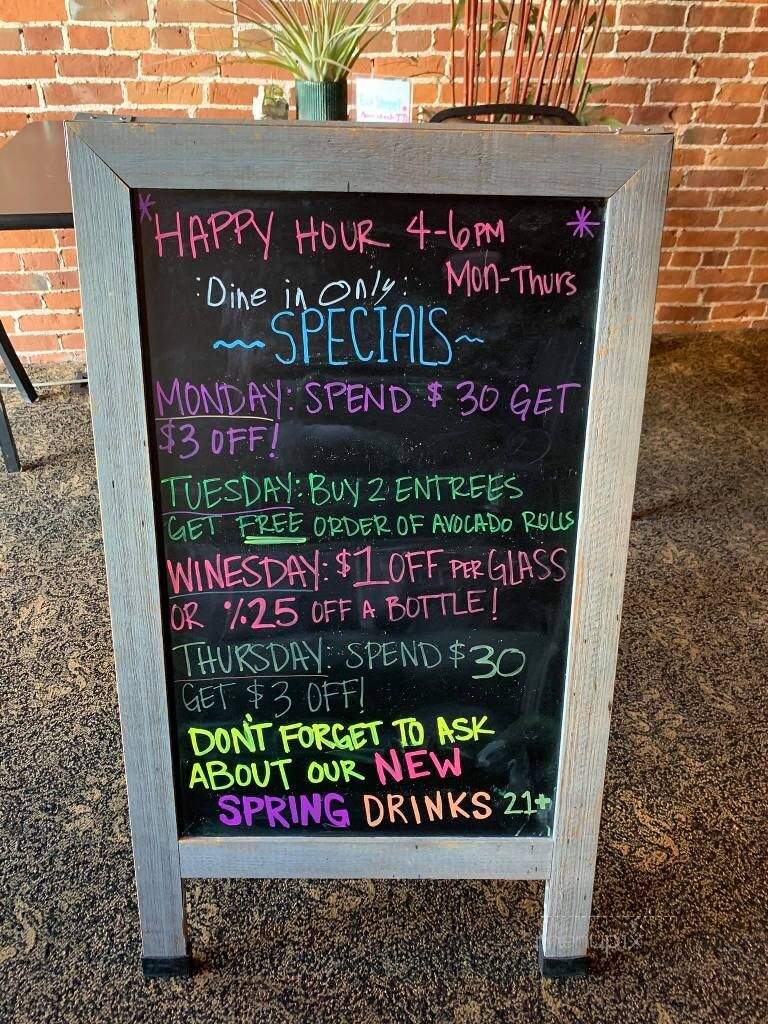 HAPPY HOUR 4-6PM
Mon-Thurs
:Dine in Only:
~SPECIALS~
MONDAY: SPEND $30 GET
$3 OFF!
TUESDAY: BUY 2 ENTREES
GET FREE ORDER OF AVOCADO ROLLS
WINESDAY: $1 OFF PER GLASS
OR %25 OFF A BOTTLE!
THURSDAY: SPEND $30
GET $3 OFF!
DON'T FORGET TO ASK
ABOUT OUR NEW
SPRING DRINKS 21+